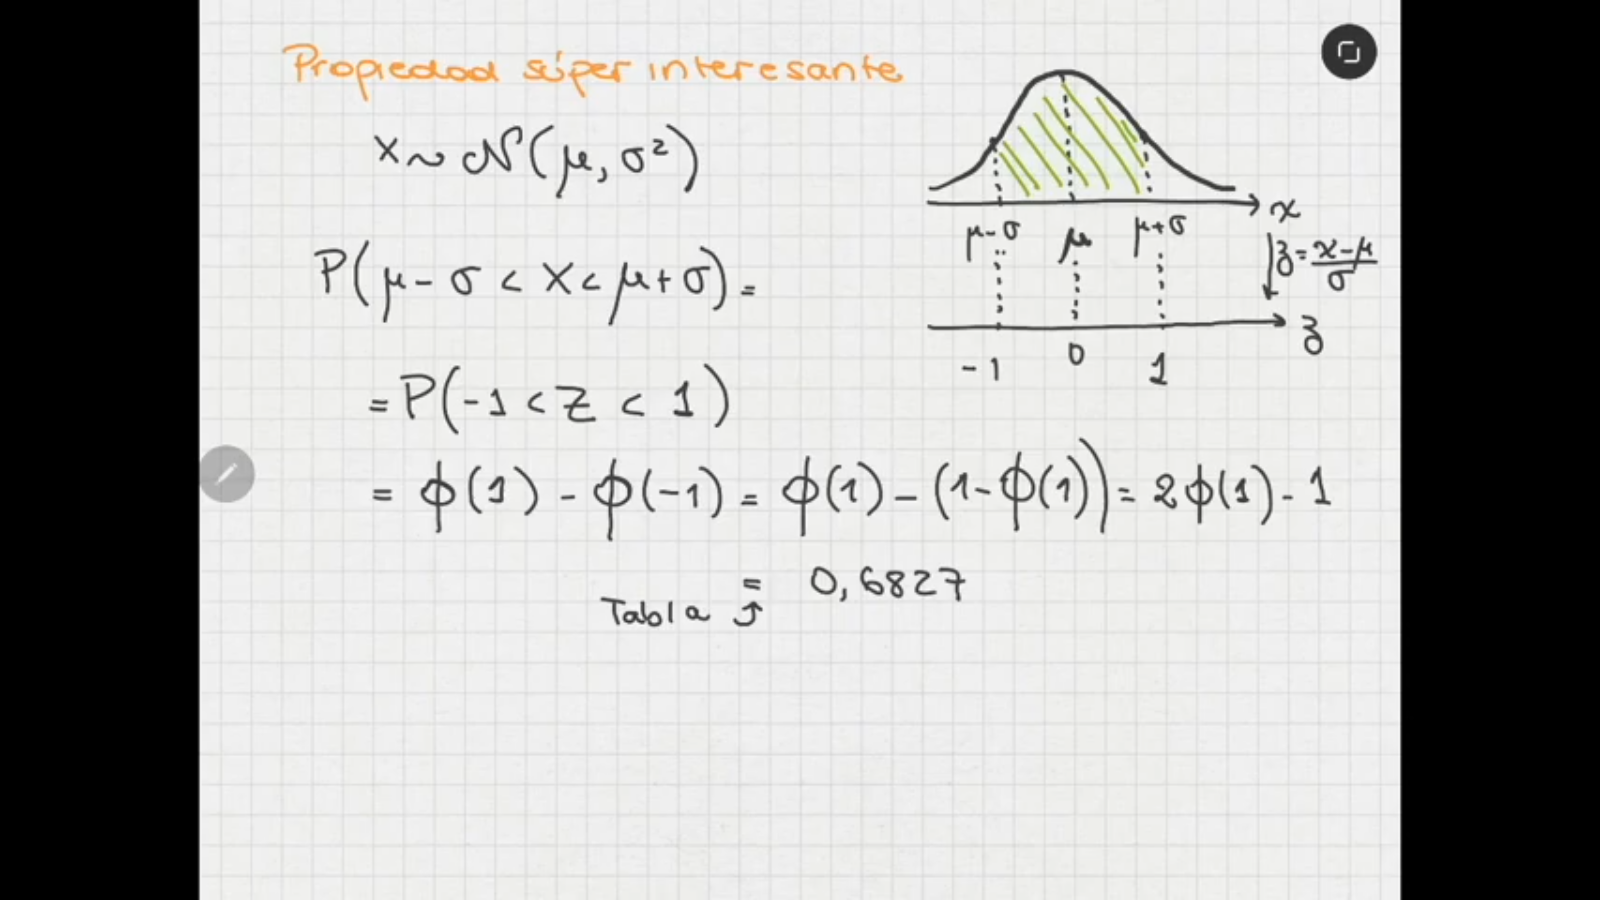 Propiedad súper interesante
X ~ N(μ, σ²)
P(μ - σ < X < μ + σ) =
= P(-1 < Z < 1)
= ϕ(1) - ϕ(-1) = ϕ(1) - (1 - ϕ(1)) = 2ϕ(1) - 1
= 0,6827
Tabla
x
μ-σ μ μ+σ
z = x-μ / σ
z
-1 0 1